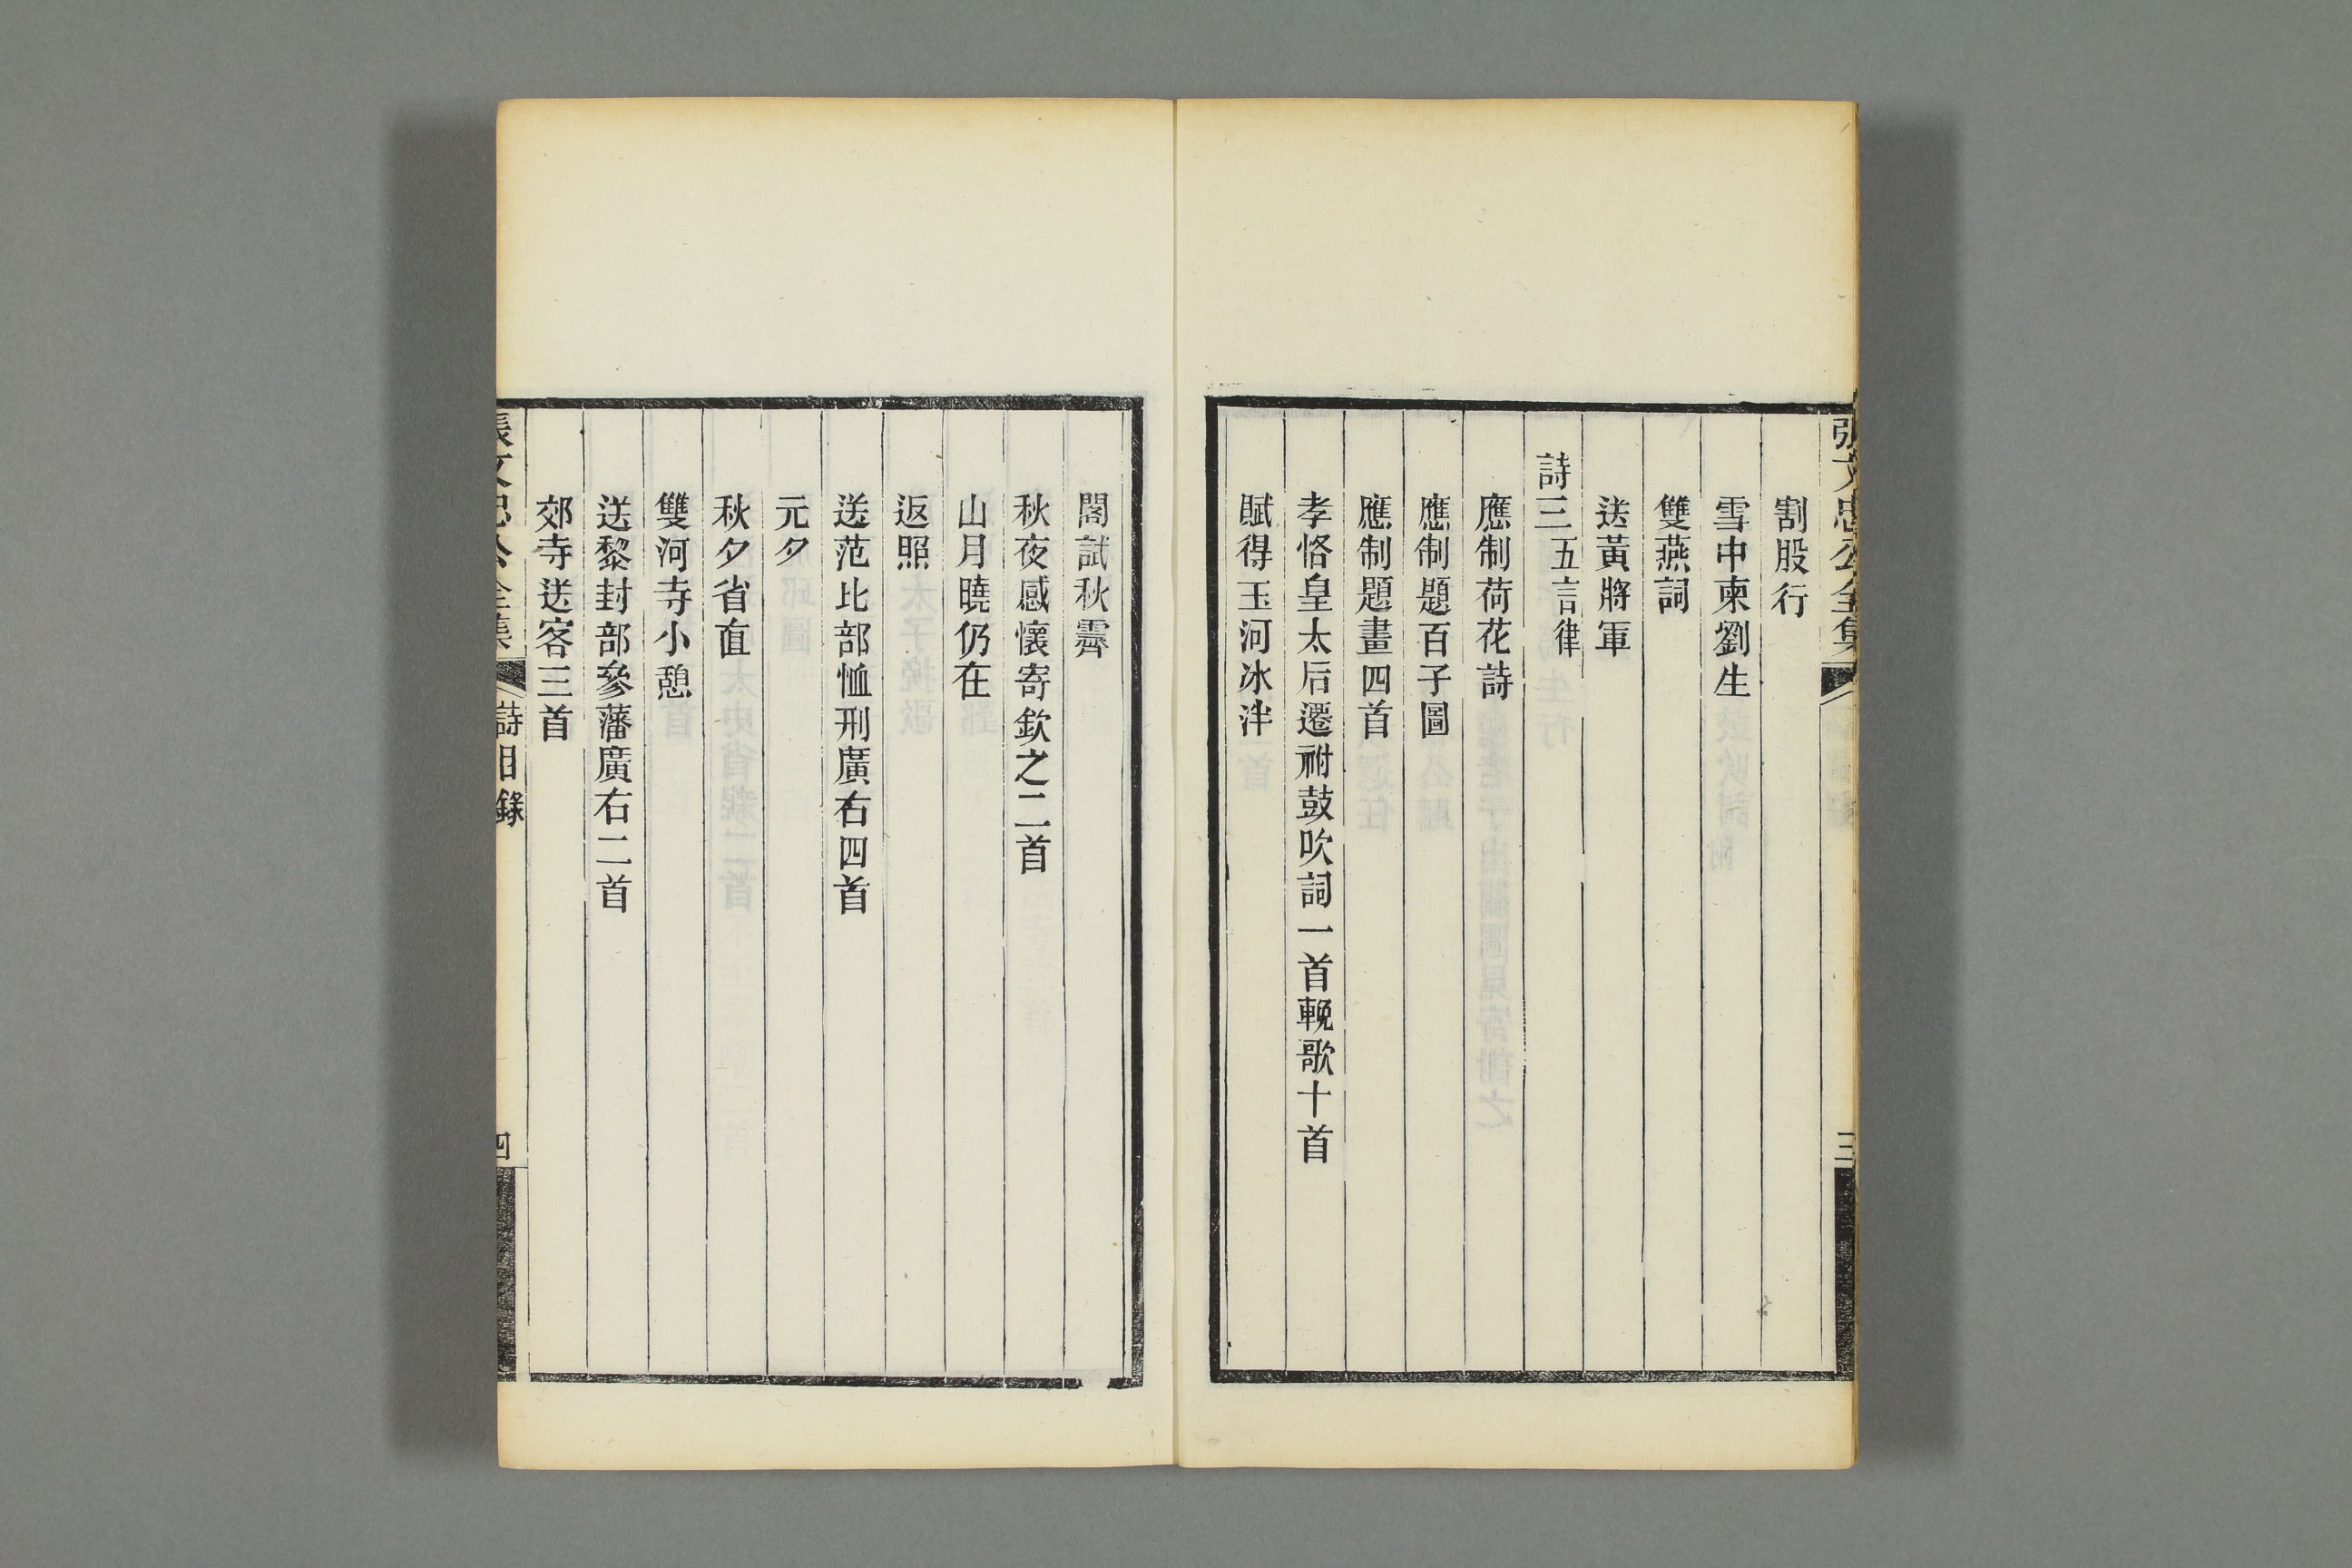 張文忠公全集
三
割股行
雪中柬劉生
雙燕詞
送黃將軍
詩三五言律
應制荷花詩
應制題百子圖
應制題畫四首
孝恪皇太后遷祔鼓吹詞一首輓歌十首
賦得玉河冰泮
閣試秋霽
秋夜感懷寄欽之二首
山月曉仍在
返照
送范比部恤刑廣右四首
元夕
秋夕省直
雙河寺小憩
送黎封部參藩廣右二首
郊寺送客三首
張文忠公全集
詩目錄
四